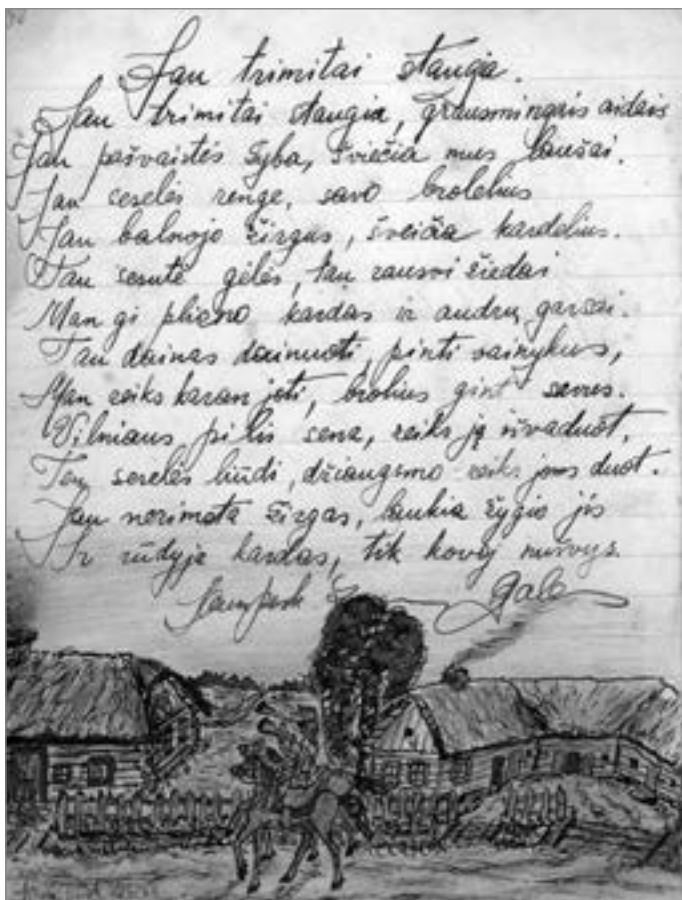 Jau trimitai staugia.
Jau trimitai staugia, grausmingais aidais
Jau pašvaistės žyba, šviečia mus laužai.
Jau seselės renge, savo brolelius
Jau balnojo žirgus, šveičia kardelius.
Tau sesutė gėlės, tau rausvi žiedai
Man gi plieno kardas ir audrų garsai.
Tau dainas dainuoti, pinti vainykus,
Man reiks karan joti, brolius gint savus.
Vilniaus pilis sena, reiks ją išvaduot,
Ten seselės liūdi, džiaugsmo reiks joms duot.
Jau nerimsta žirgas, laukia žygio jis
Ir rūdyja kardas, tik kovoj nušvys.
Gale